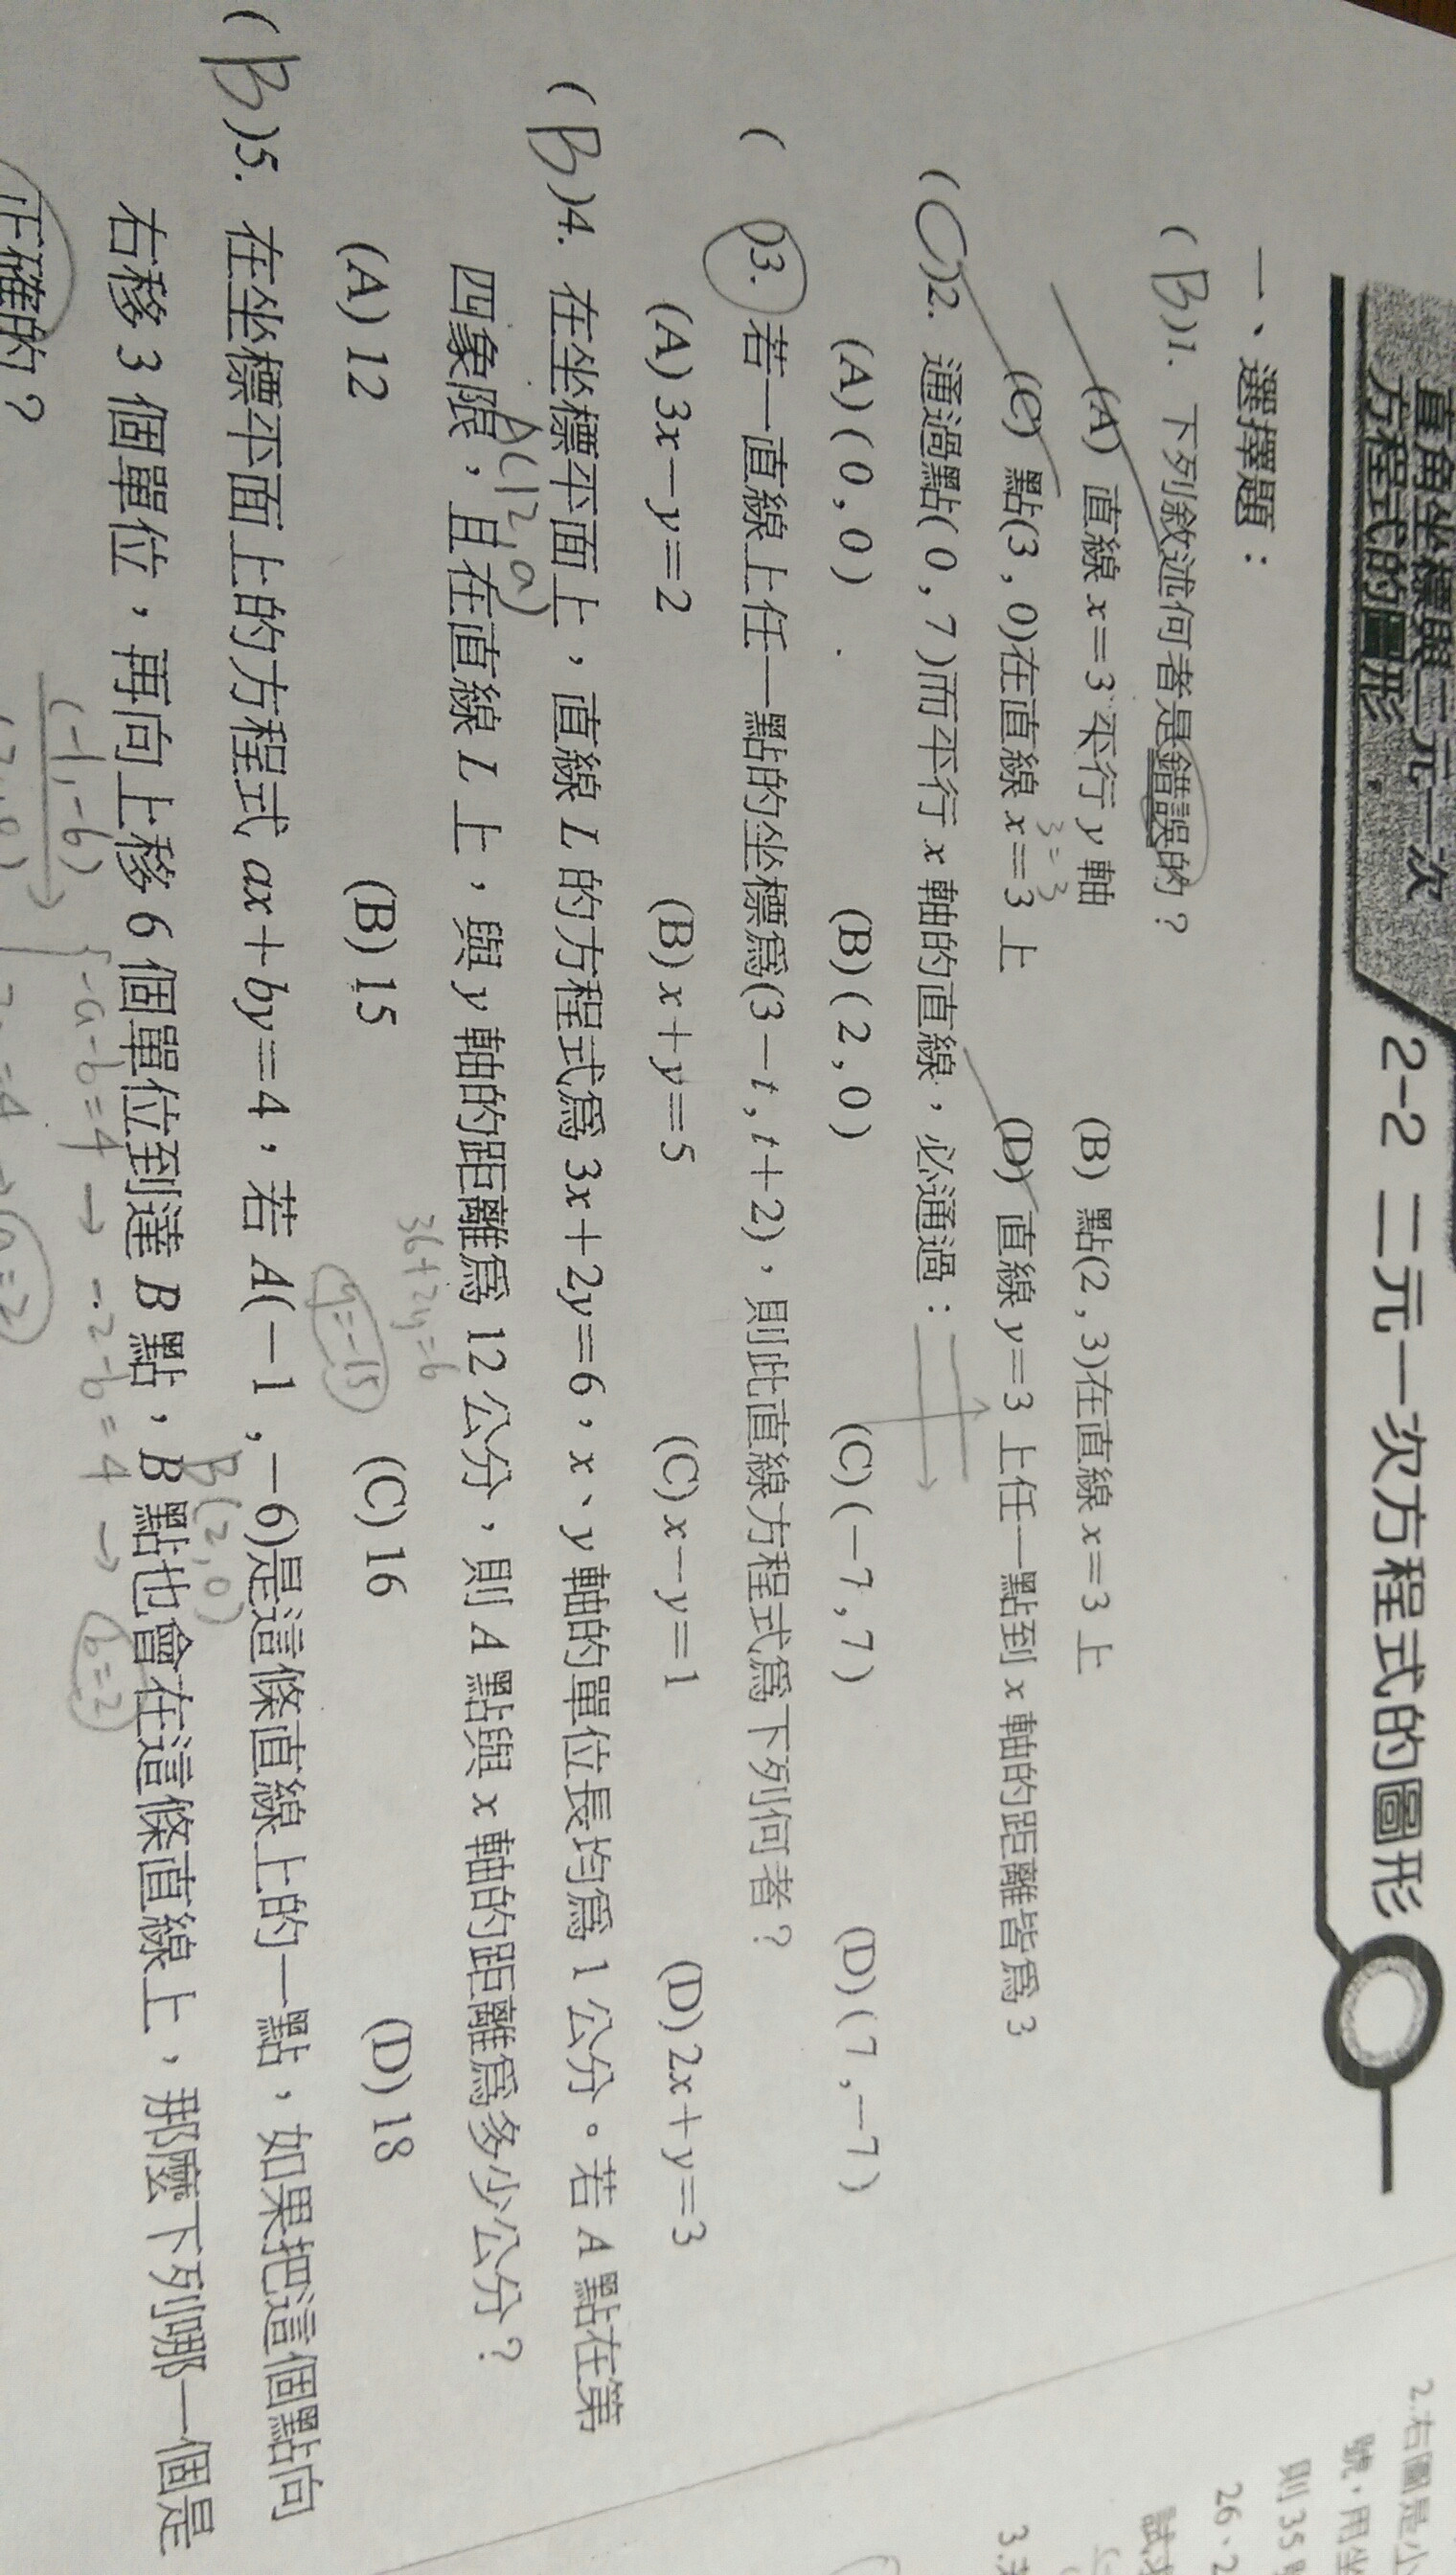 直角坐標與二元一次
方程式的圖形
2-2 二元一次方程式的圖形
一、選擇題：
(B)1. 下列敘述何者是錯誤的？
(A) 直線 x=3 平行 y 軸 (B) 點(2,3)在直線 x=3 上
3=3
(C) 點(3,0)在直線 x=3 上 (D) 直線 y=3 上任一點到 x 軸的距離皆為 3
(C)2. 通過點(0,7)而平行 x 軸的直線，必通過：
(A)(0,0) (B)(2,0) (C)(-7,7) (D)(7,-7)
( )3. 若一直線上任一點的坐標為(3-t,t+2)，則此直線方程式為下列何者？
(A) 3x-y=2 (B) x+y=5 (C) x-y=1 (D) 2x+y=3
(B)4. 在坐標平面上，直線 L 的方程式為 3x+2y=6，x、y 軸的單位長均為 1 公分。若 A 點在第
A(12,a)
四象限，且在直線 L 上，與 y 軸的距離為 12 公分，則 A 點與 x 軸的距離為多少公分？
36+2y=6
(A) 12 (B) 15 (C) 16 (D) 18
y=-15
(B)5. 在坐標平面上的方程式 ax+by=4，若 A(-1,-6)是這條直線上的一點，如果把這個點向
B(2,0)
右移 3 個單位，再向上移 6 個單位到達 B 點，B 點也會在這條直線上，那麼下列哪一個是
(-1,-6) -a-b=4 → -2-b=4 → b=2
正確的？
a=2
2.右圖是小
號，用坐
則35
26、2
試求
3.